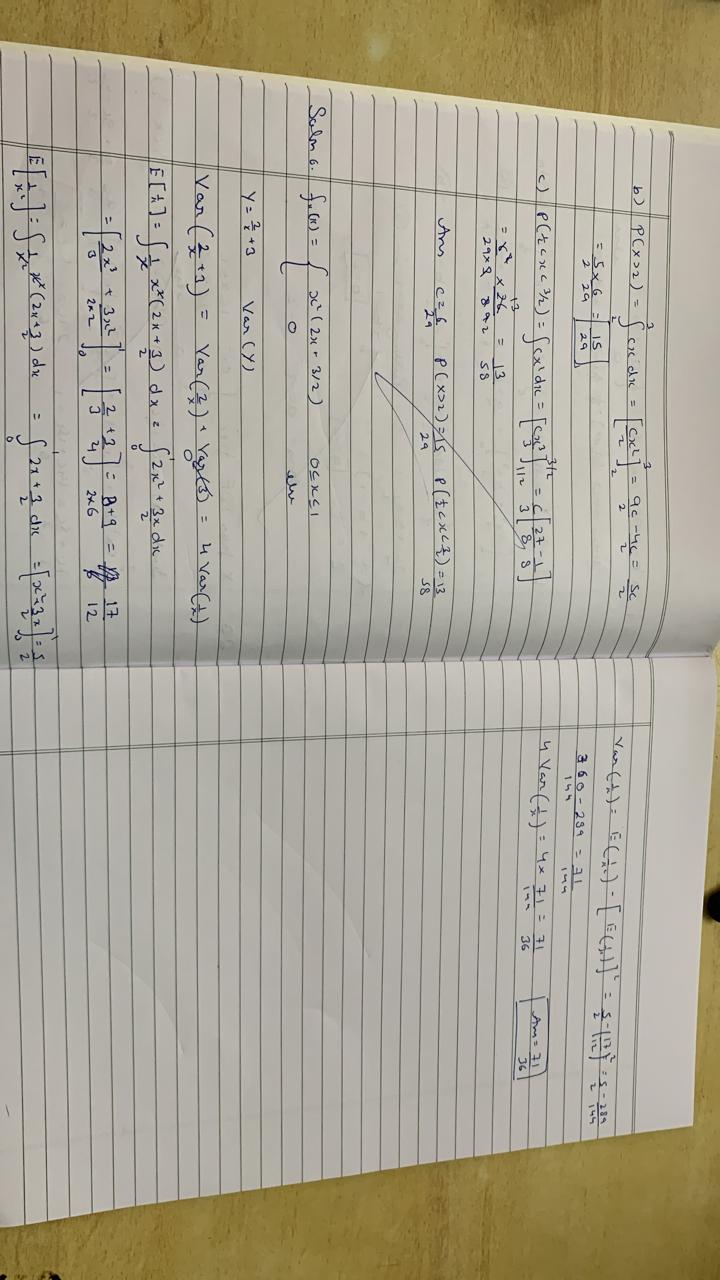 b) P(x>2) = ∫₂³ cx dx = [cx²/2]₂³ = 9c/2 - 4c/2 = 5c/2
= 5/2 × 6/29 = 15/29
c) P(1/2<x<3/2) = ∫cx² dx = [cx³/3]_{1/2}^{3/2} = c/3 [27/8 - 1/8]
= 6²/29×3 × 26 13/8 4 2 = 13/58
Ans c=6/29 P(x>2)=15/29 P(1/2<x<3/2)=13/58
Soln 6. fₓ(x) = { x²(2x + 3/2) 0≤x≤1
0 else
Y = 2/x +3 Var(Y)
Var(2/x +3) = Var(2/x) + Var(3) 0 = 4 Var(1/x)
E[1/x] = ∫ 1/x x²(2x + 3/2) dx = ∫₀¹ 2x² + 3x/2 dx
= [2x³/3 + 3x²/2×2]₀¹ = [2/3 + 3/4] = 8+9/2×6 = 17/12
E[1/x²] = ∫ 1/x² x²(2x+3/2) dx = ∫₀¹ 2x + 3/2 dx = [x²+3x/2]₀¹ = 5/2
Var(1/x) = E(1/x²) - [E(1/x)]² = 5/2 - [17/12]² = 5/2 - 289/144
360-289/144 = 71/144
4 Var(1/x) = 4× 71/144 = 71/36 Ans = 71/36